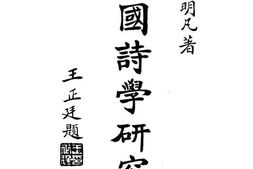 明凡著
國詩學研究
王正廷題